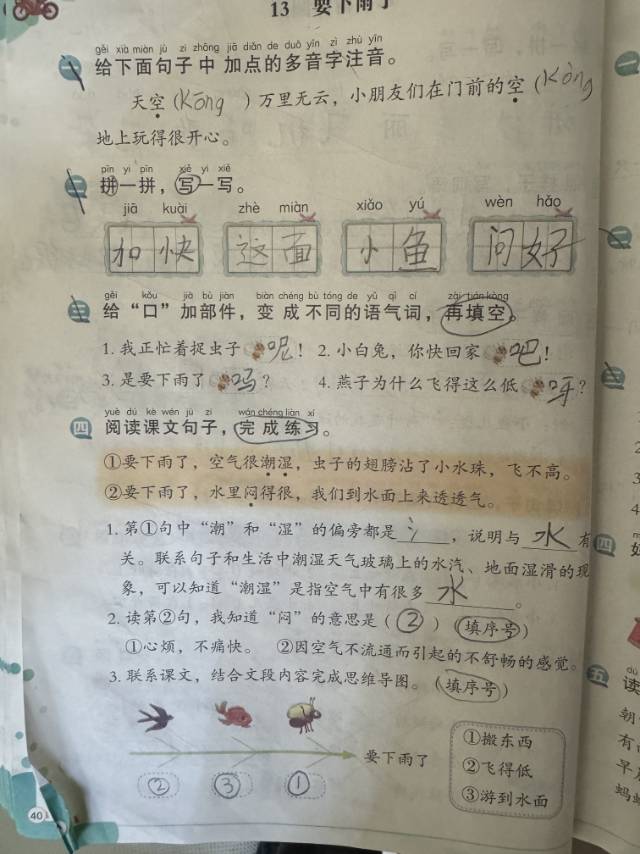 13 要下雨了
gěi xià miàn jù zi zhōng jiā diǎn de duō yīn zì zhù yīn
一 给下面句子中加点的多音字注音。
天空(Kōng)万里无云，小朋友们在门前的空(Kòng
地上玩得很开心。
pīn yi pīn xiě yi xiě
二 拼一拼，写一写。
jiā kuài zhè miàn xiǎo yú wèn hǎo
加快 这面 小鱼 问好
gěi kǒu jiā bù jiàn biàn chéng bù tóng de yǔ qì cí zài tián kòng
三 给“口”加部件，变成不同的语气词，再填空。
1. 我正忙着捉虫子呢！ 2. 小白兔，你快回家吧！
3. 是要下雨了吗？ 4. 燕子为什么飞得这么低呀？
yuè dú kè wén jù zi wán chéng liàn xí
四 阅读课文句子，完成练习。
①要下雨了，空气很潮湿，虫子的翅膀沾了小水珠，飞不高。
②要下雨了，水里闷得很，我们到水面上来透透气。
1. 第①句中“潮”和“湿”的偏旁都是氵，说明与水有
关。联系句子和生活中潮湿天气玻璃上的水汽、地面湿滑的现
象，可以知道“潮湿”是指空气中有很多水。
2. 读第②句，我知道“闷”的意思是(②)(填序号)
①心烦，不痛快。 ②因空气不流通而引起的不舒畅的感觉。
3. 联系课文，结合文段内容完成思维导图。(填序号)
要下雨了
② ③ ①
①搬东西
②飞得低
③游到水面
40
一
二
三
2
3
4
四
五 dú
读
朝
有
早
蚂